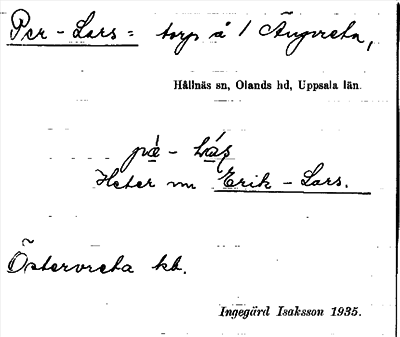 Per-Lars = torp å 1 Ängvreta,
Hållnäs sn, Olands hd, Uppsala län.
pä̀ - lás
Heter nu Erik-Lars.
Östervreta kb.
Ingegärd Isaksson 1935.